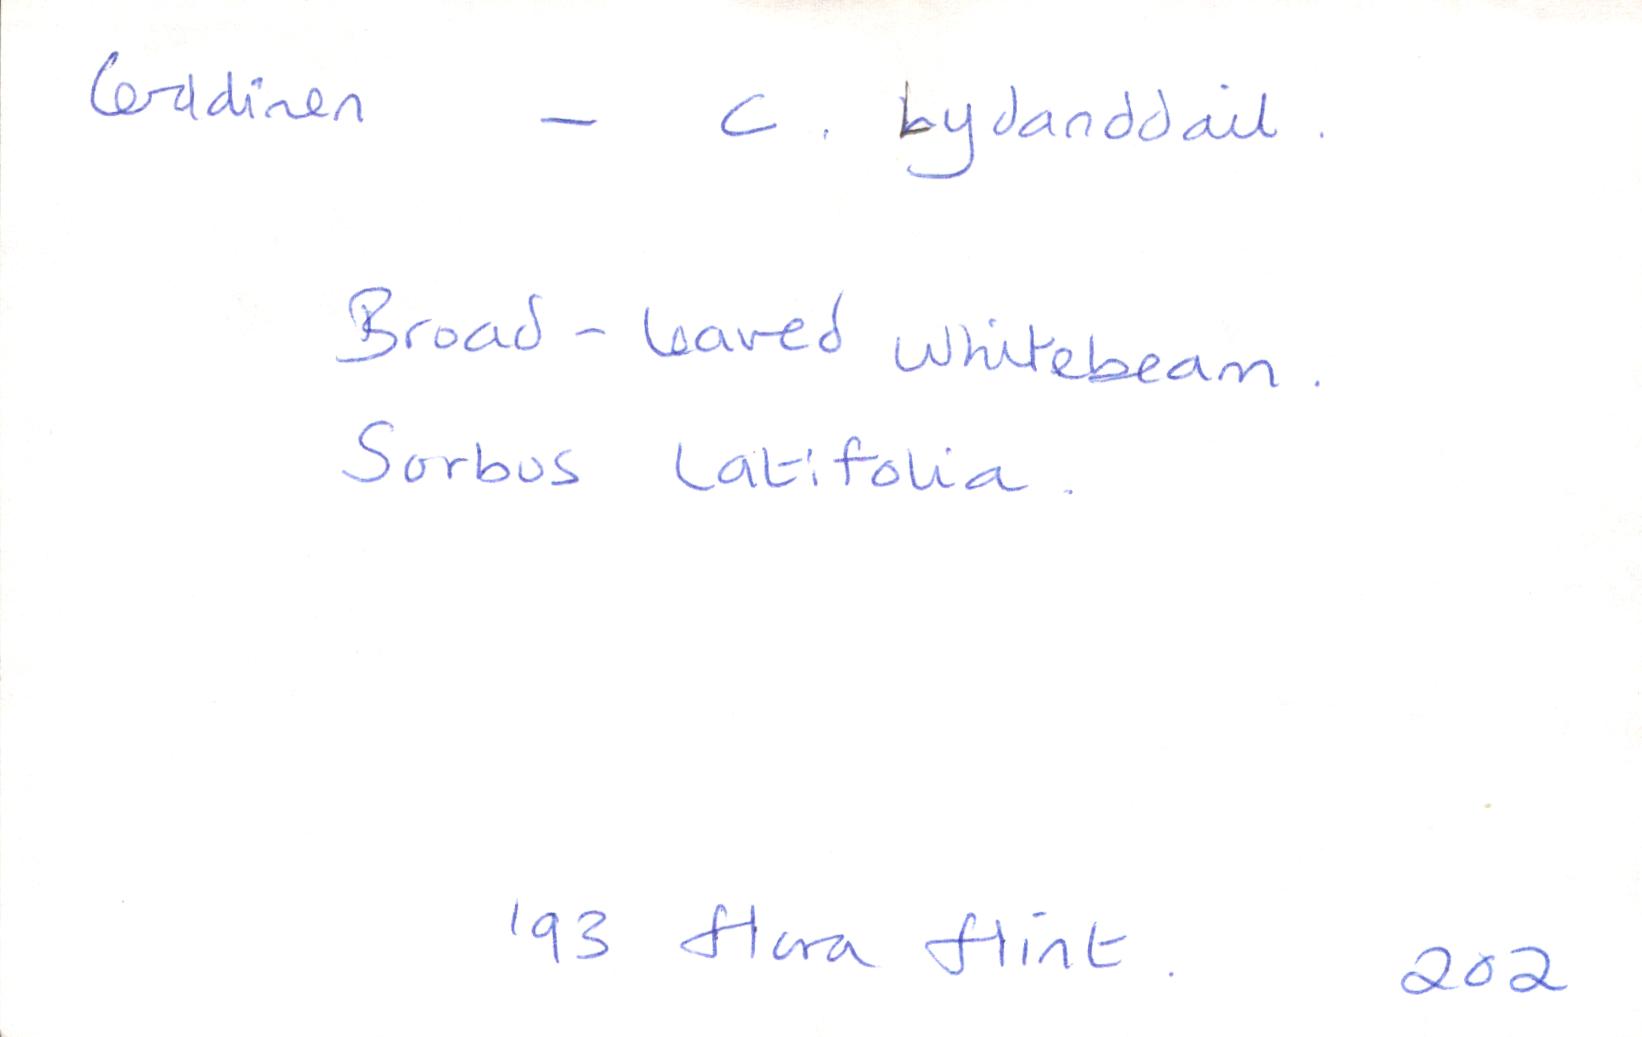 Cerddinen - C. lydanddail.
Broad-leaved whitebeam.
Sorbus latifolia.
'93 flora flint. 202